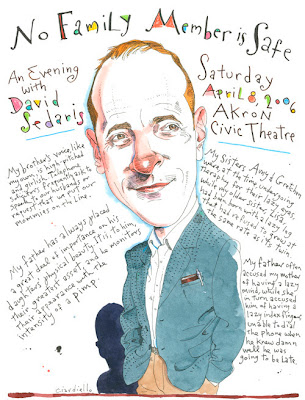 No Family Member is Safe
An Evening
with
David
Sedaris
Saturday
April 8, 2006
AKRON
Civic Theatre
My brother's voice, like
my own, is high-pitched
and girlish. Telephone
solicitors frequently ask to
speak to our husbands or
request that we put our
mommies on the line.
My father has always placed
a great deal of importance on his
daughters' physical beauty. It is, to him,
their greatest asset, and he monitors
their appearance with the
intensity of a pimp.
My sisters Amy & Gretchen
were at the time undergoing
therapy for their lazy eyes,
while my older sister, Lisa
had been born with a leg
that had refused to grow at
the same rate as its twin.
My father often
accused my mother
of having a lazy
mind, while she
in turn accused
him of having a
lazy index finger,
unable to dial
the phone when
he knew damn
well he was
going to be late.
ciardiello